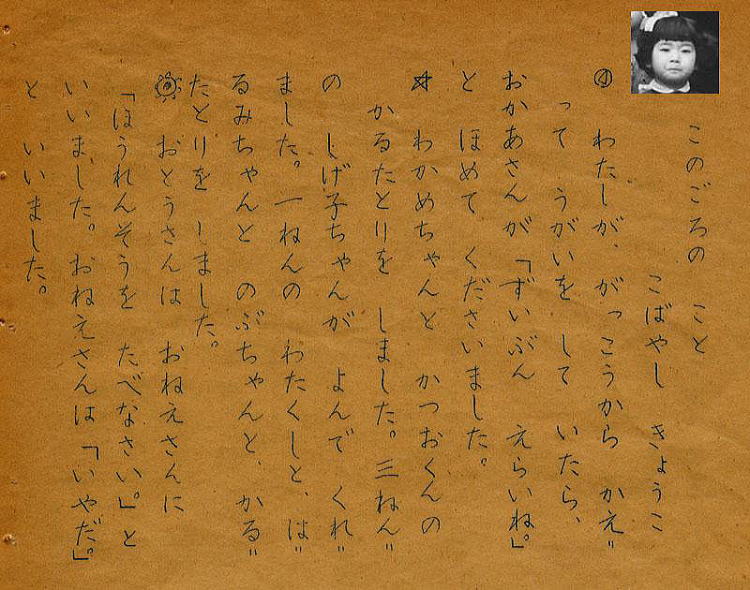 このごろの こと
こばやし きょうこ
① わたしが、がっこうから かえ〃
って うがいを して いたら、
おかあさんが「ずいぶん えらいね。」
と ほめて くださいました。
☆ わかめちゃんと かつおくんの
かるたとりを しました。三ねん〃
の しげ子ちゃんが よんで くれ〃
ました。一ねんの わたくしと、は〃
るみちゃんと のぶちゃんと、かる〃
たとりを しました。
おとうさんは おねえさんに
「ほうれんそうを たべなさい。」と
いいました。おねえさんは「いやだ。」
と いいました。